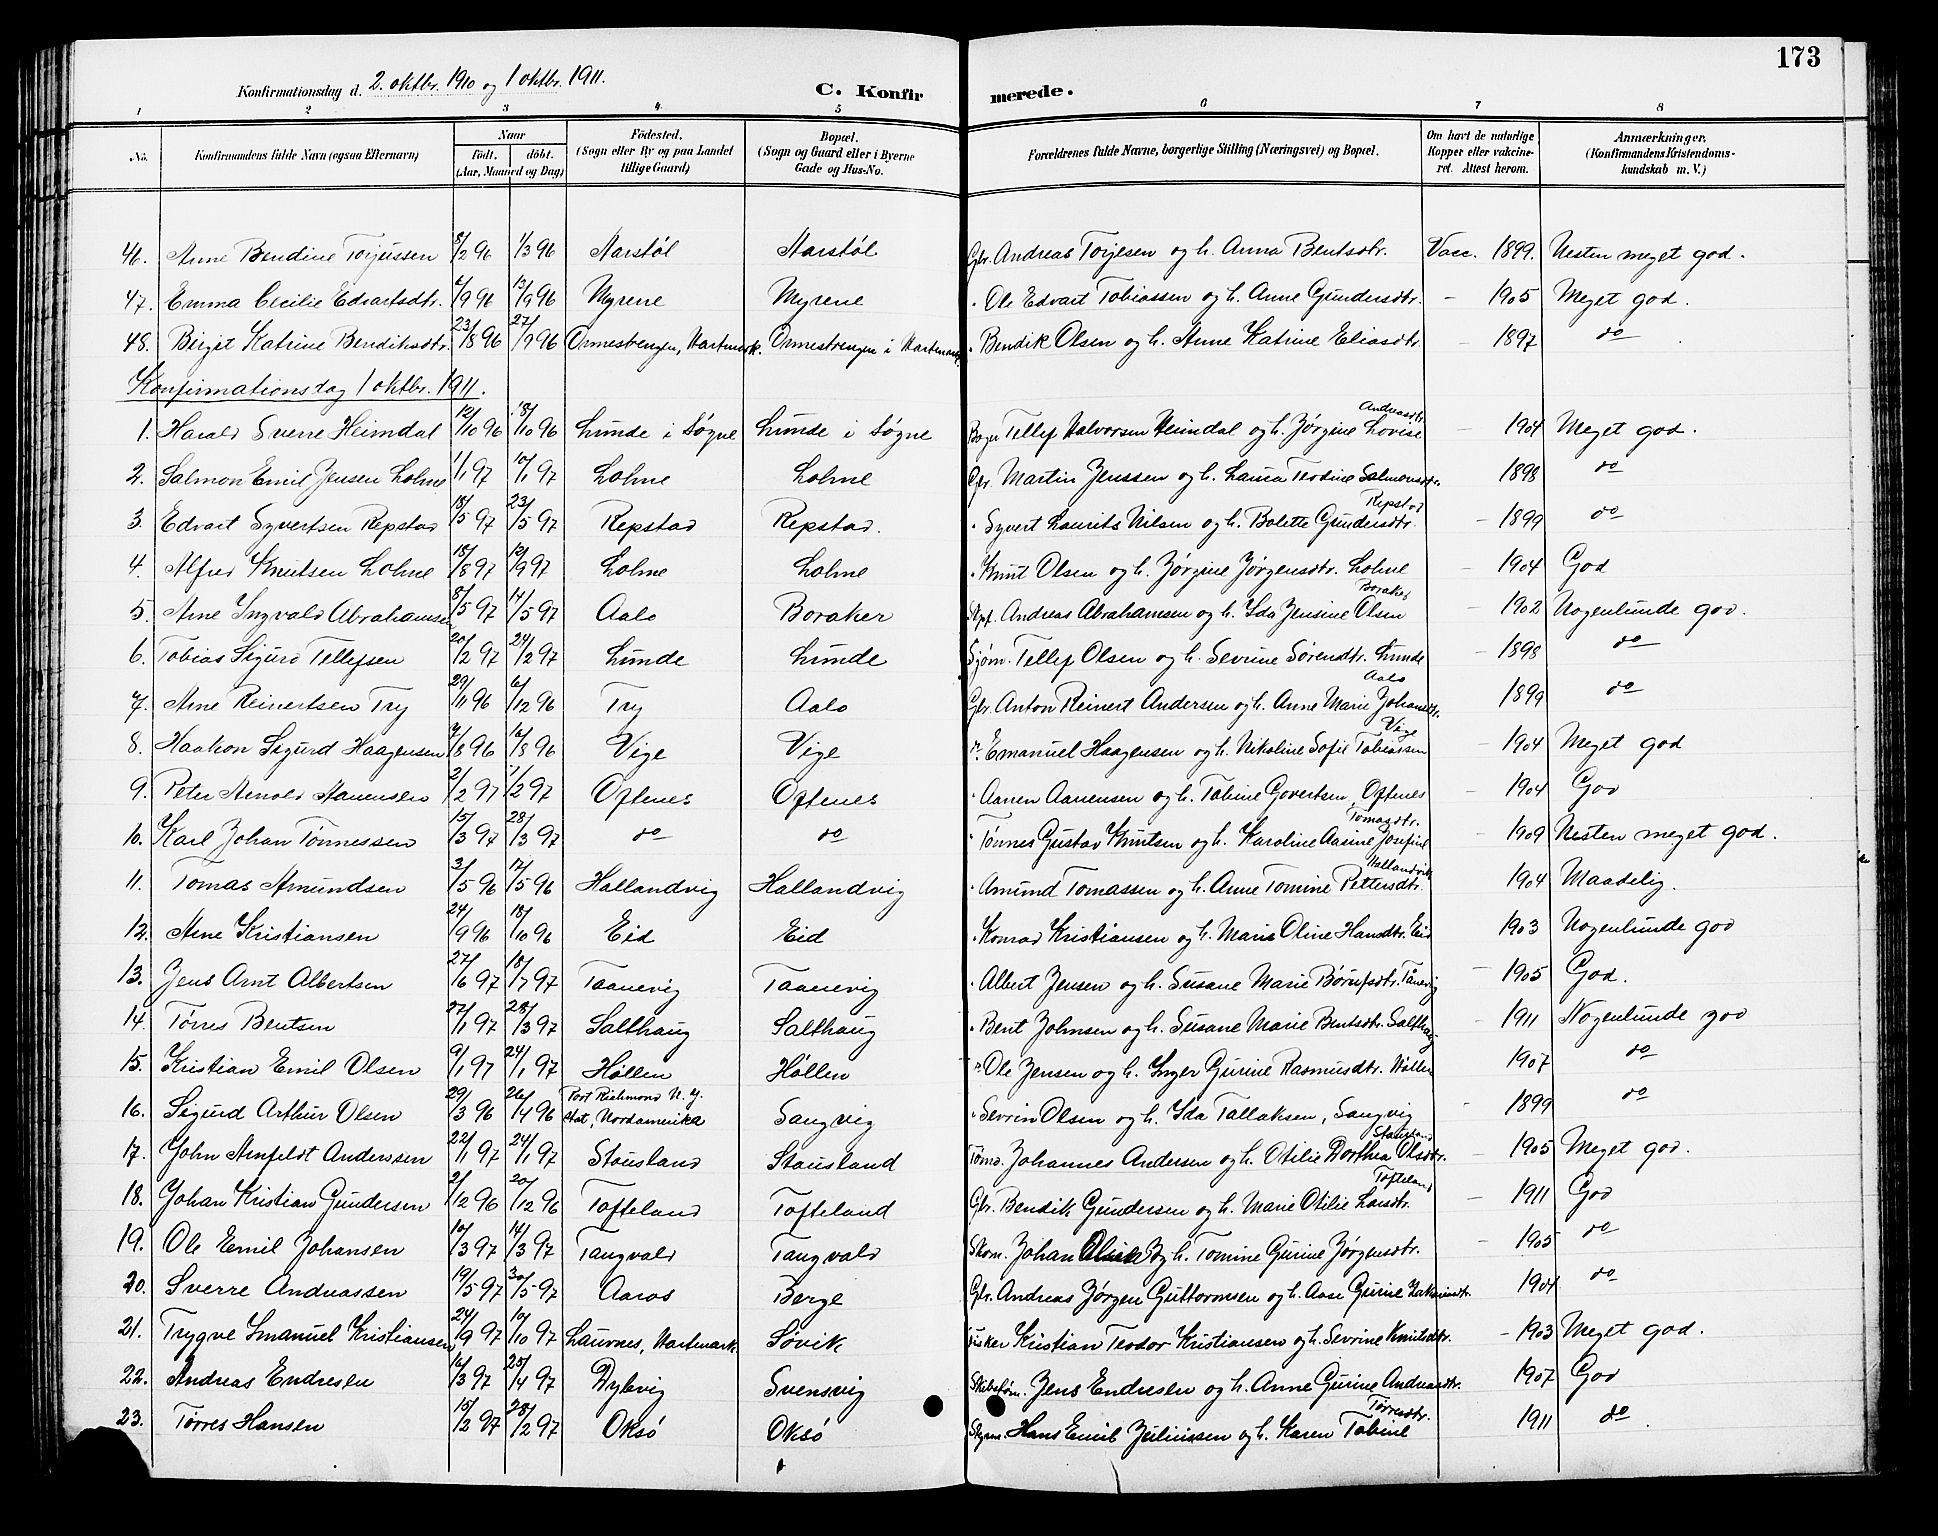 173
Konfirmationsdag d. 2. oktbr. 1910 og 1 oktbr. 1911. C. Konfirmerede.
1 2 3 4 5 6 7 8
No. Konfirmandens fulde Navn (ogsaa Efternavn) Naar født, døbt. (Aar, Maaned og Dag) Fødested. (Sogn eller By og paa Landet tillige Gaard) Bopæl. (Sogn og Gaard eller i Byerne Gade og Hus-No. Forældrenes fulde Navne, borgerlige Stilling (Næringsvei) og Bopæl. Om havt de naturlige Kopper eller vakcineret. Attest herom. Anmærkninger. (Konfirmandens Kristendomskundskab m. V.)
46. Anne Bendine Torjussen 8/2 96 1/3 96 Aarstøl Aarstøl Gbr. Andreas Torjesen og h. Anna Bentsdtr. Vacc. 1899. Nesten meget god.
47. Emma Cecilie Edvartsdtr. 6/9 96 13/9 96 Myrene Myrene " Ole Edvart Tobiassen og h. Anne Gundersdtr. - 1905 Meget god.
48. Birgit Katrine Bendiksdtr. 23/8 96 27/9 96 Ormestrengen, Hartmark. Ormestrengen i Hartmark. " Bendik Olsen og h. Anne Katrine Eliasdtr. - 1897 do
Konfirmationsdag 1 oktbr. 1911.
1. Harald Sverre Heimdal 12/10 96 18/10 96 Lunde i Søgne Lunde i Søgne Bager Tellef Halvorsen Heimdal og h. Jørgine Lovise Andreasdtr. - 1904 Meget god.
2. Salmon Emil Jensen Lohne 1/1 97 10/1 97 Lohne Lohne Gbr. Martin Jenssen og h. Laura Teodine Salmonsdtr. - 1898 do
3. Edvart Syvertsen Repstad 18/5 97 23/5 97 Repstad Repstad. " Syvert Laurits Nilsen og h. Bolette Gundersdtr. Repstad - 1899 do
4. Alfred Knutsen Lohne 18/8 97 12/9 97 Lohne Lohne " Knut Olsen og h. Jørgine Jørgensdtr. Lohne - 1904 God
5. Arne Ingvald Abrahamsen 8/5 97 14/5 97 Aalo Boraker Andreas Abrahamsen og h. Ida Jensine Olsen Boraker - 1902 Nogenlunde god.
6. Tobias Sigurd Tellefsen 20/2 97 24/2 97 Lunde Lunde Sjøm. Tellef Olsen og h. Sevrine Sørendtr. Lunde - 1898 do
7. Arne Reinertsen Try 29/11 96 6/12 96 Try Aalo Gbr. Anton Reinert Andersen og h. Anne Marie Johansdtr. Aalo 1899 do
8. Haakon Sigurd Haagensen 7/8 96 16/8 96 Vige Vige " Emanuel Haagensen og h. Nikoline Sofie Tobiassen Vige - 1904 Meget god
9. Peter Arnold Aanensen 2/2 97 1/2 97 Oftenes Oftenes " Aanen Aanensen og h. Tobine Govertsen, Oftenes - 1904 God
10. Karl Johan Tønnessen 15/3 97 28/3 97 do do " Tønnes Gustav Knutsen og h. Karoline Aasine Josefine Tomasdtr. - 1909 Nesten meget god.
11. Tomas Amundsen 3/5 96 17/5 96 Hallandvig Hallandvig " Amund Tomassen og h. Anne Tomine Pettersdtr. Hallandvik - 1904 Maadelig.
12. Arne Kristiansen 24/9 96 18/10 96 Eid Eid " Konrad Kristiansen og h. Marie Oline Hansdtr. Eid 1903 Nogenlunde god
13. Jens Arnt Albertsen 27/6 97 18/7 97 Taanevig Taanevig " Albert Jensen og h. Susane Marie Børufsdtr. Tånevig - 1905 God.
14. Tørres Bentsen 27/1 97 28/3 97 Salthaug Salthaug " Bent Johnsen og h. Susane Marie Bentsdtr. Salthaug - 1911 Nogenlunde god
15. Kristian Emil Olsen 9/1 97 24/1 97 Høllen Høllen " Ole Jensen og h. Inger Gurine Rasmusdtr. Høllen 1907 do
16. Sigurd Arthur Olsen 29/3 96 26/4 96 Port Richmond N. Y. Stat, Nordamerika Sangvig " Sevrin Olsen og h. Ida Tallaksen, Sangvig - 1899 do
17. John Arnfeldt Anderssen 22/1 97 24/1 97 Stausland Stausland Tømd. Johannes Andersen og h. Otilie Dorthea Olsdtr. Stausland - 1905 Meget god.
18. Johan Kristian Gundersen 2/12 96 20/12 96 Tofteland Tofteland Gbr. Bendik Gundersen og h. Marie Otilie Larsdtr. Tofteland - 1911 God
19. Ole Emil Johansen 10/3 97 14/3 97 Tangvald Tangvald Skom. Johan Olsen og h. Tomine Gurine Jørgensdtr. - 1905 do
20. Sverre Andreassen 19/5 97 30/5 97 Aaros Berge Gbr. Andreas Jørgen Guttormsen og h. Aase Gurine 1904 do
21. Trygve Emanuel Kristiansen 24/9 97 10/10 97 Laurnes, Hartmark. Søvik Fisker Kristian Teodor Kristiansen og h. Sevrine Knutsdtr. - 1903 Meget god.
22. Andreas Endresen 16/3 97 25/4 97 Dybvig Svensvig Skibstøm. Jens Endresen og h. Anne Gurine Andreasdtr. 1907 God
23. Tørres Hansen 15/2 97 28/2 97 Oksø Oksø Hans Emil Juliussen og h. Karen Tobine Tørresdtr. 1911 do